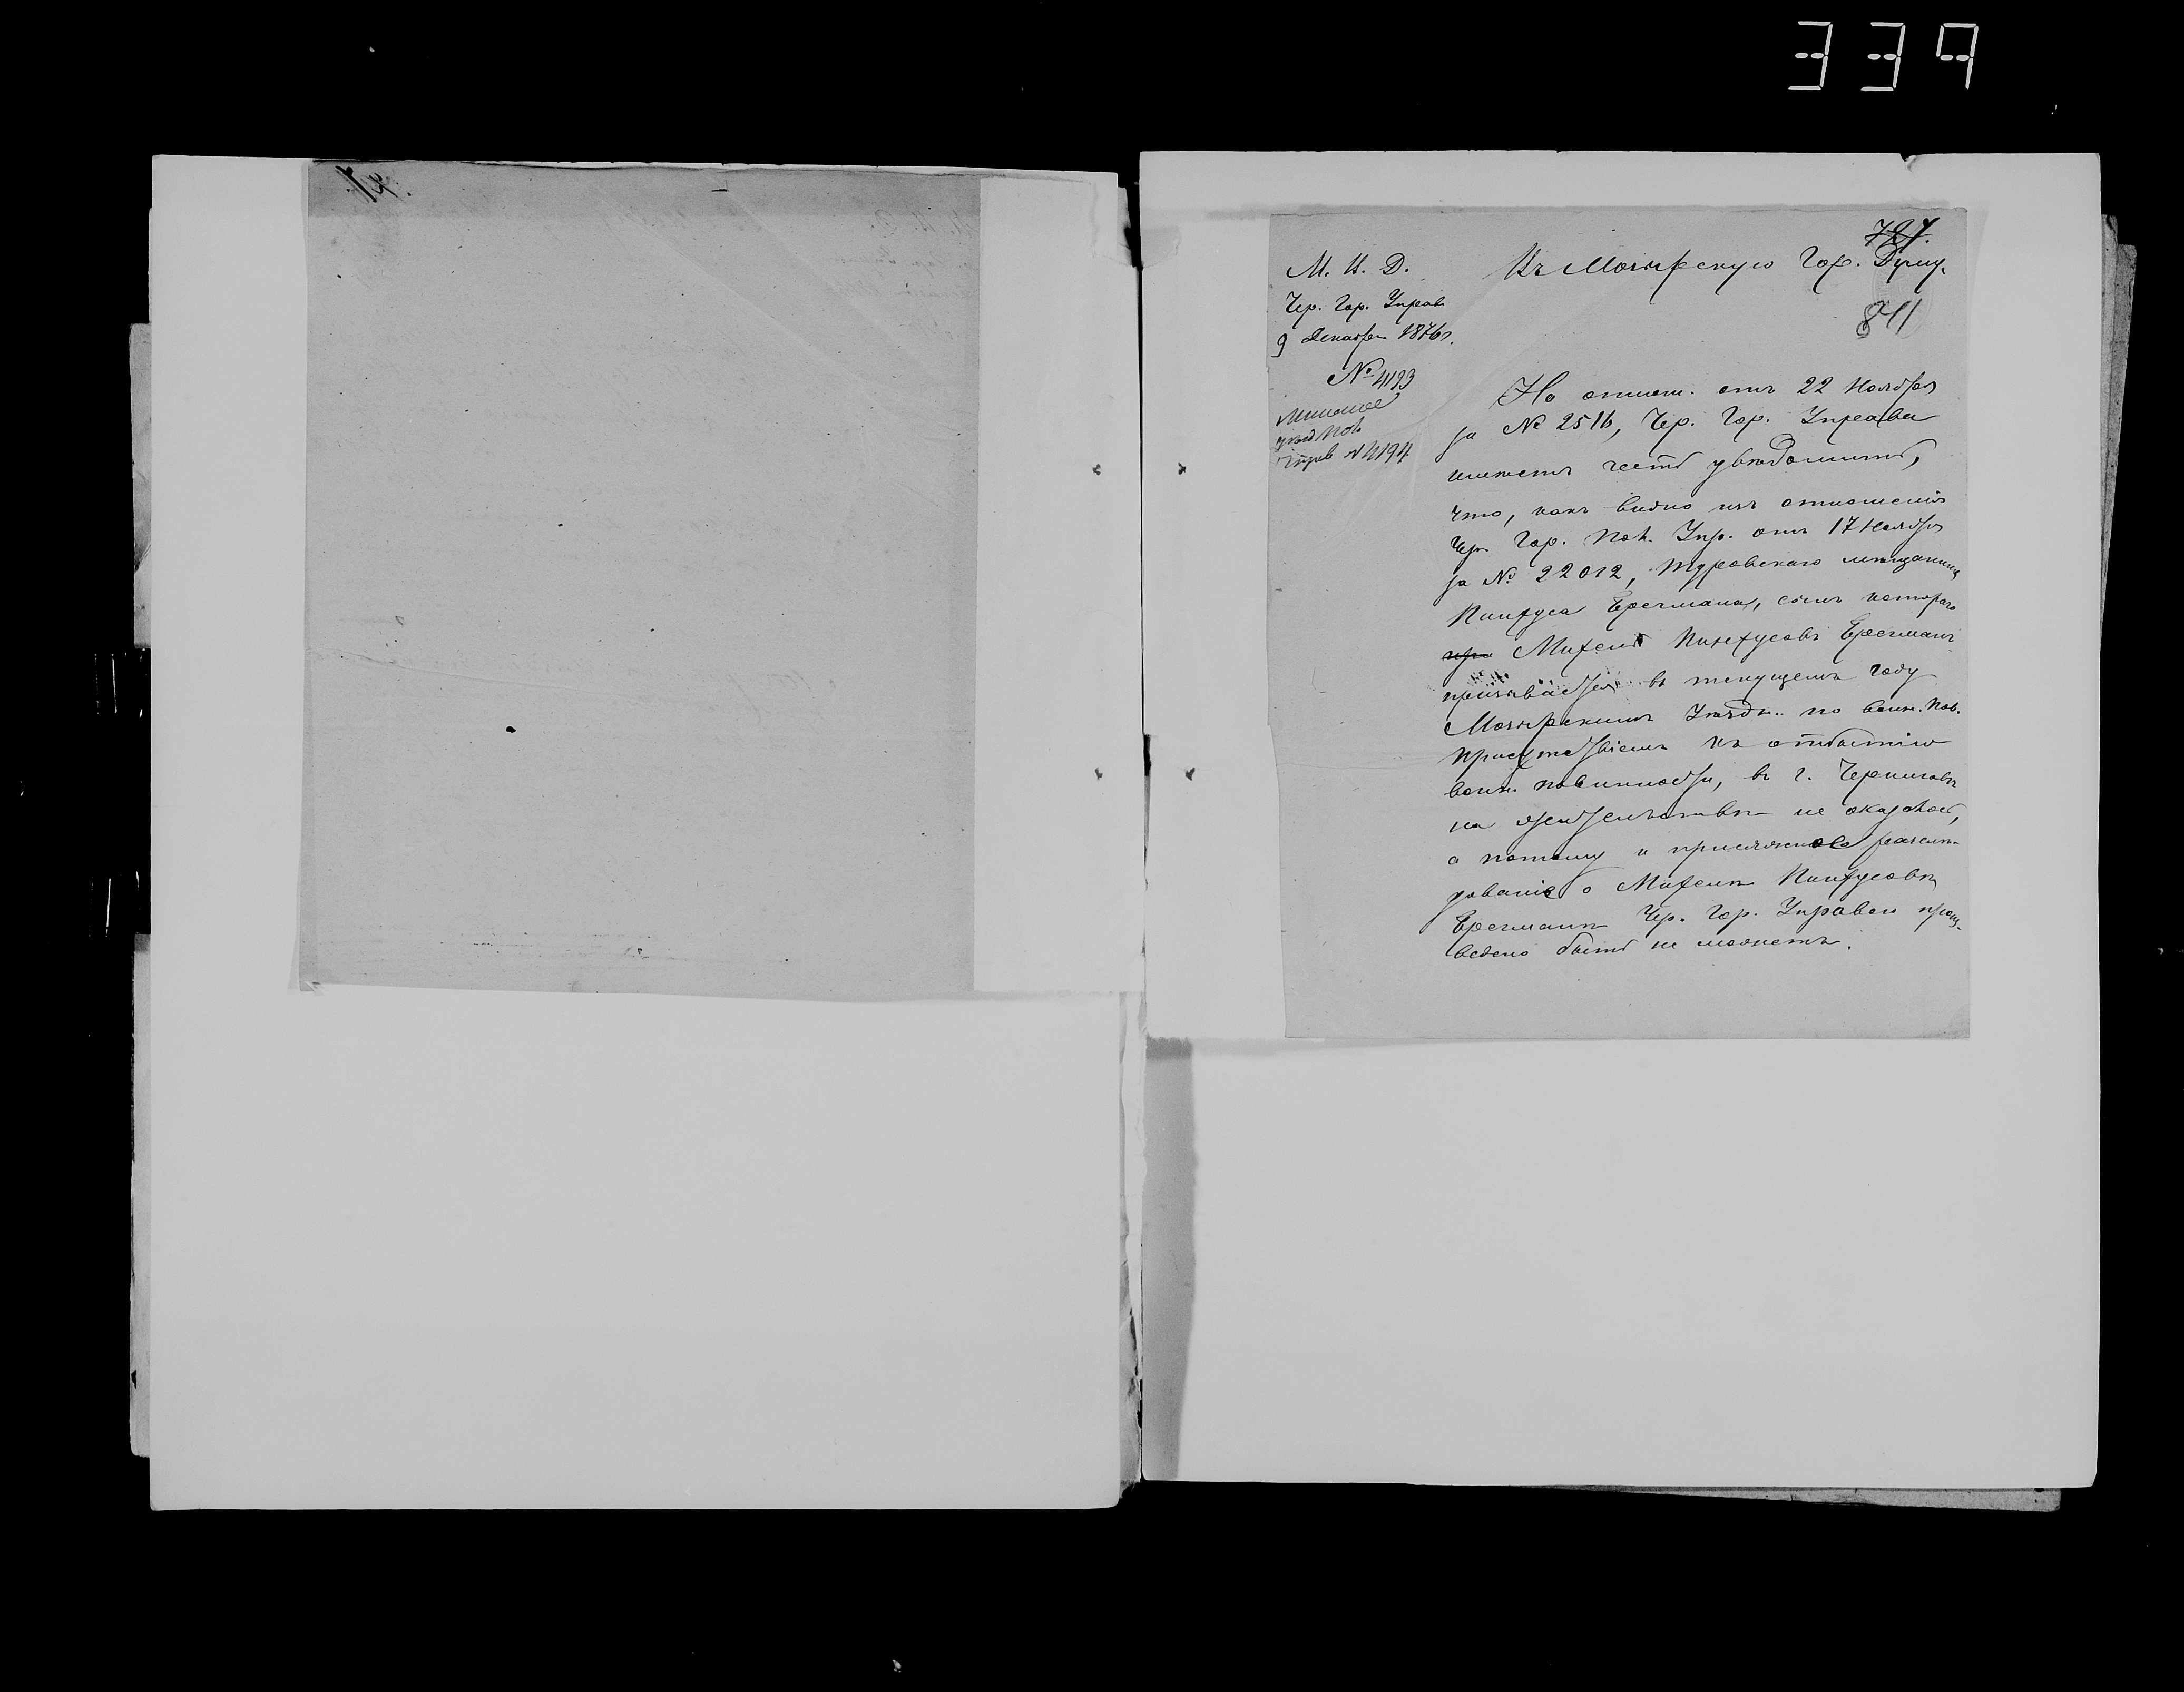 339
727.
М. В. Д.
Въ Мозырскую Гор. Думу.
Чер. Гор. Управ.
841
9 Декабря 1876 г.
№ 4193
№ 4194
На отнош. отъ 22 Ноября
за № 2516, Чер. Гор. Управа
имѣетъ честь увѣдомить,
что, какъ видно изъ отношенія
Чер. Гор. Пол. Упр. отъ 17 Ноября
за № 22012, Туровскаго мѣщанина
Пинхуса Брегмана, сынъ котораго
Михель Пинхусовъ Брегманъ
призывается въ текущемъ году
Мозырскимъ Уѣздн. по воин. пов.
присутствіемъ къ отбытію
воин. повинности, въ г. Черниговѣ
на жительствѣ не оказалось,
а потому и присяжное разслѣ-
дованіе о Михелѣ Пинхусовѣ
Брегманѣ Чер. Гор. Управою произ-
ведено быть не можетъ.